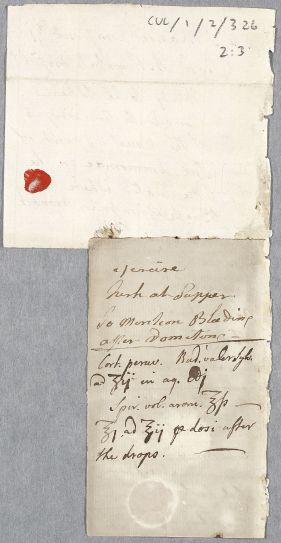 CUL/1/2/326
2:3
exercise
flesh at Supper.
To Mention Bleeding
after Vomiting
Cort. peruv. Rad. valer. sylv.
ad ʒij in aq.
Spir. vol. arom. ʒſs
ʒj. ad ʒij dosi after
the drops.